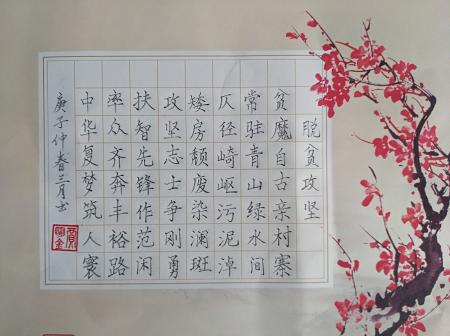 脱贫攻坚
贫魔自古亲村寨
常驻青山绿水间
仄径崎岖污泥淖
矮房颓废染澜斑
攻坚志士争刚勇
扶智先锋作范闲
率众齐奔丰裕路
中华复梦筑人寰
庚子仲春三月